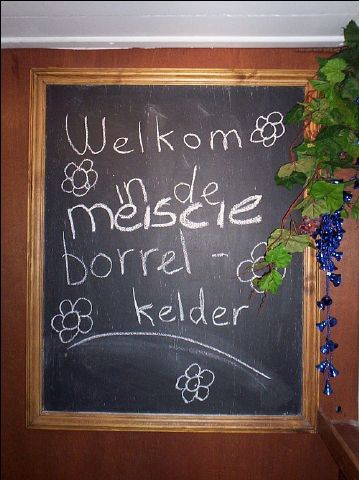 Welkom
in de
meiscie
borrel -
kelder